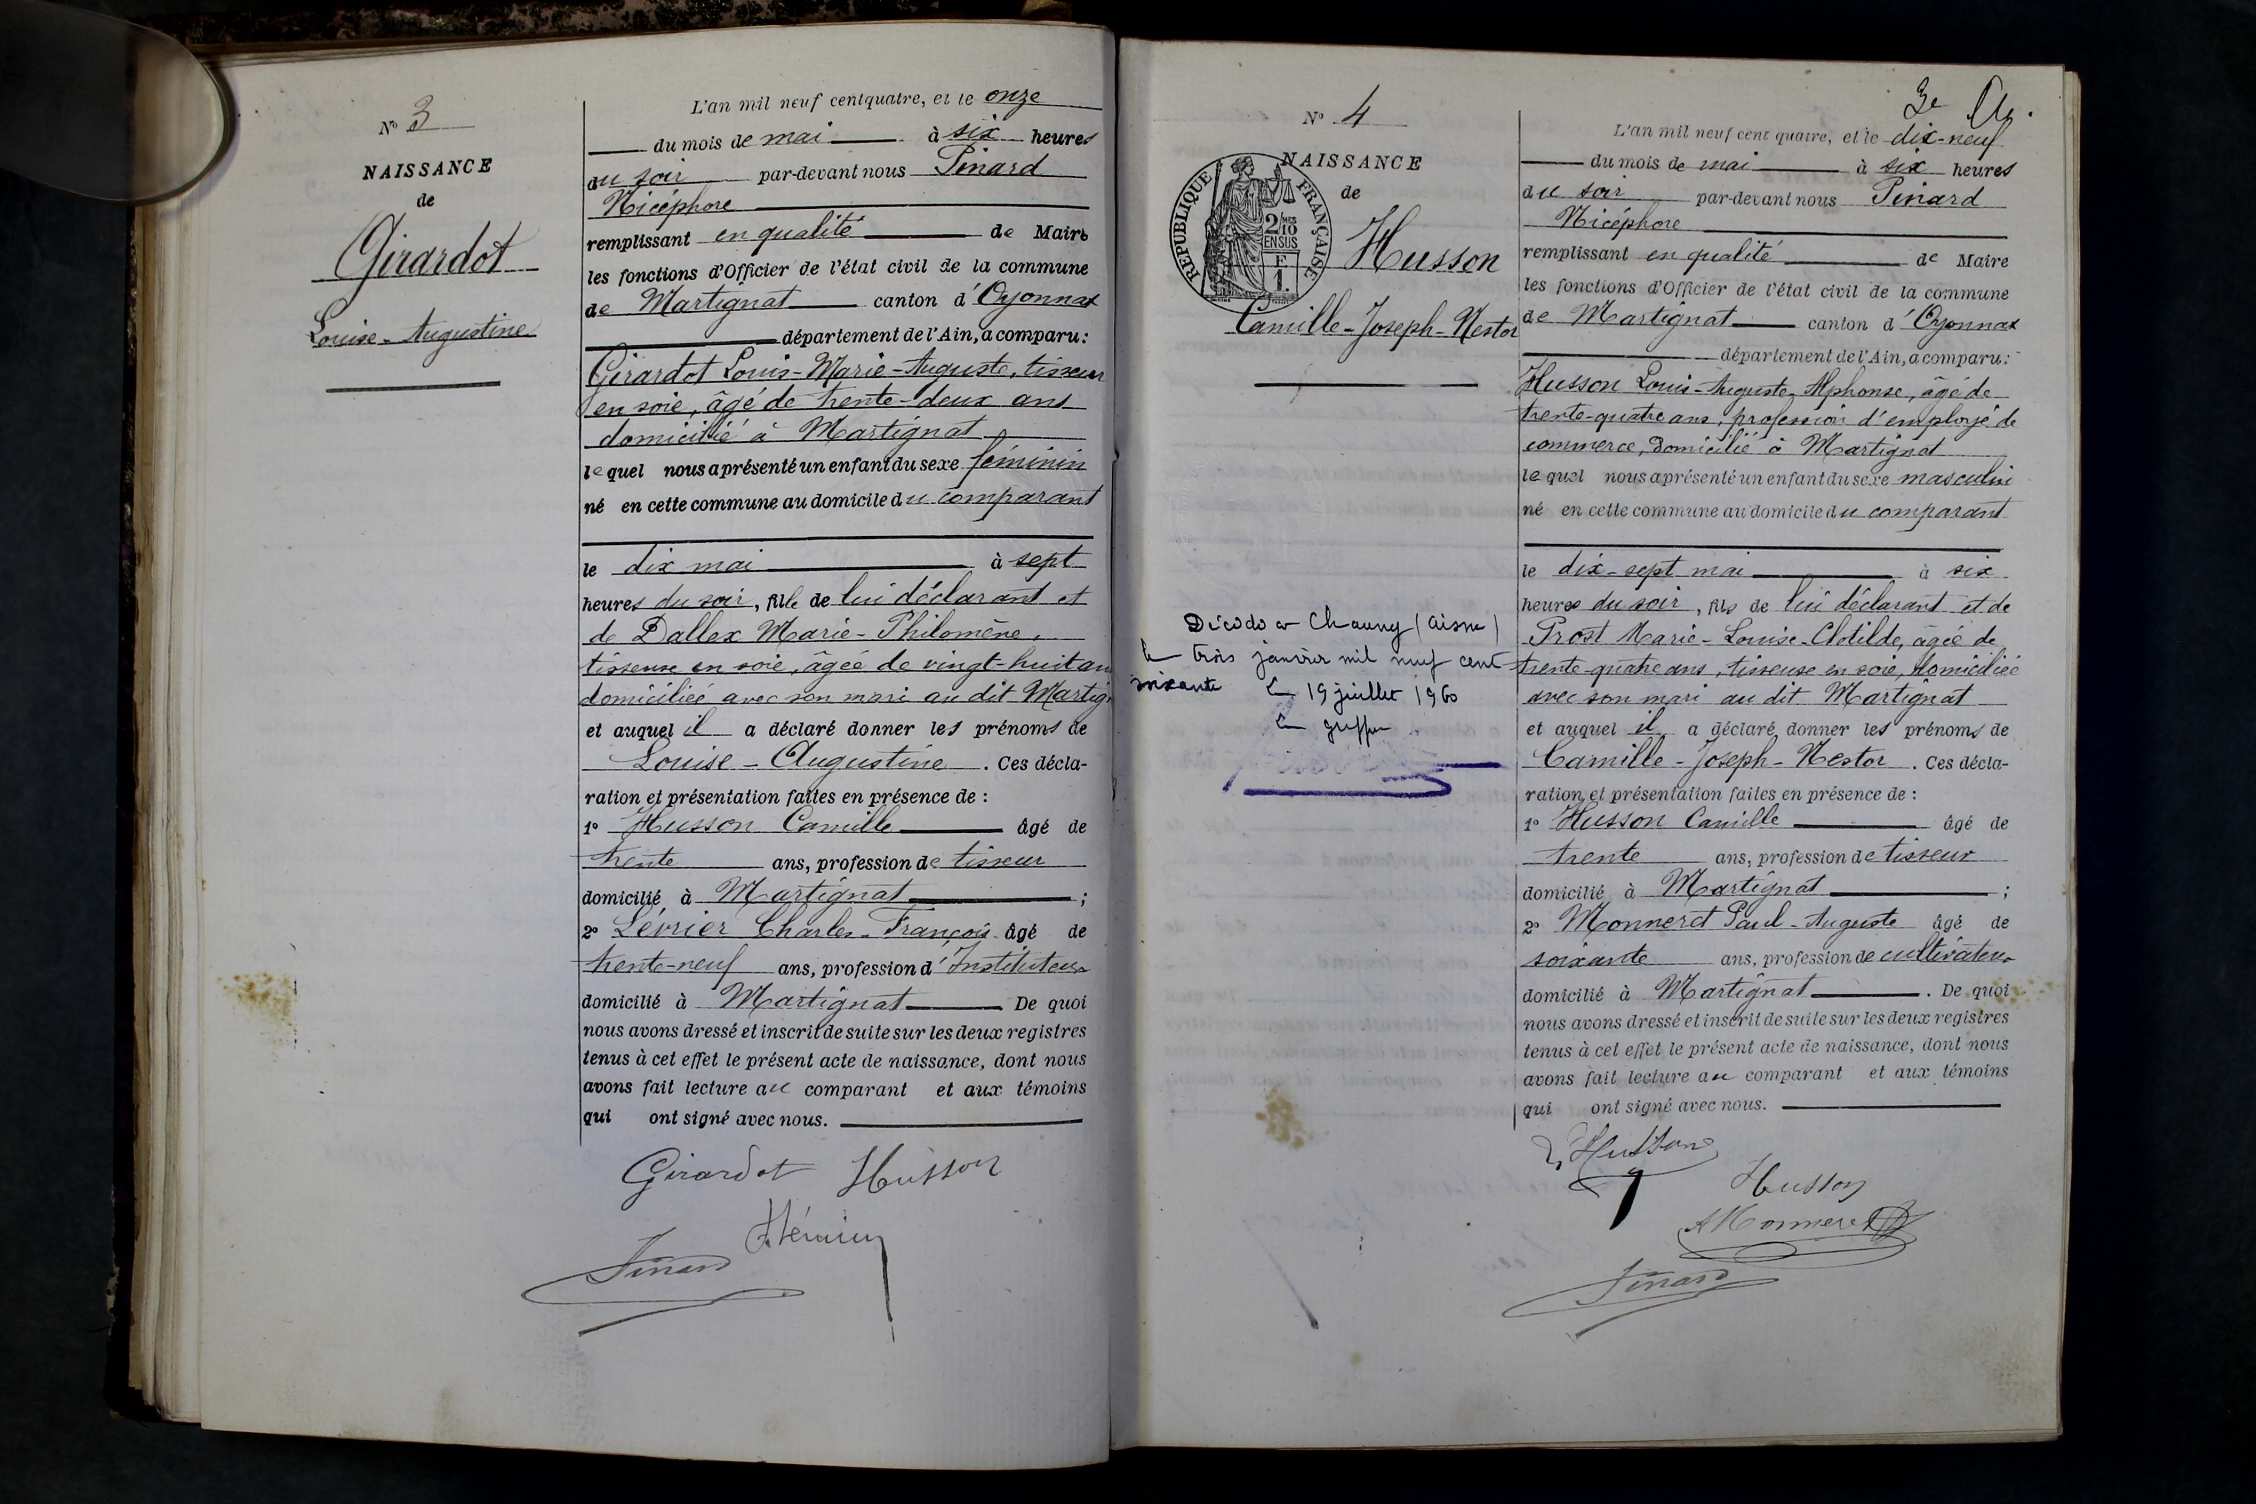 Nº 3
NAISSANCE
de
Girardot
Louise-Augustine
L'an mil neuf cent quatre, et le onze
du mois de mai à six heures
du soir par-devant nous Pinard
Nicéphore
remplissant en qualité de Maire
les fonctions d'Officier de l'état civil de la commune
de Martignat canton d'Oyonnax
département de l'Ain, a comparu:
Girardot Louis-Marie-Auguste, tisseur
en soie, âgé de trente-deux ans
domicilié à Martignat
lequel nous a présenté un enfant du sexe féminin
né en cette commune au domicile du comparant
le dix mai à sept
heures du soir, fille de lui déclarant et
de Dallex Marie-Philomène,
tisseuse en soie, âgée de vingt-huit an
domiciliée avec son mari au dit Martig
et auquel il a déclaré donner les prénoms de
Louise-Augustine. Ces décla-
ration et présentation faites en présence de:
1º Husson Camille âgé de
trente ans, profession de tisseur
domicilié à Martignat;
2º Lévrier Charles-François âgé de
trente-neuf ans, profession d'Instituteur
domicilié à Martignat De quoi
nous avons dressé et inscrit de suite sur les deux registres
tenus à cet effet le présent acte de naissance, dont nous
avons fait lecture au comparant et aux témoins
qui ont signé avec nous.
Girardot Husson
Pinard
3e
Nº 4
NAISSANCE
de
RÉPUBLIQUE FRANÇAISE
2/10
EN SUS
F
1.
Husson
Camille-Joseph-Nestor
Décédé à Chauny (Aisne)
le trois janvier mil neuf cent
soixante Le 19 juillet 1960
Le greffier
L'an mil neuf cent quatre, et le dix-neuf
du mois de mai à six heures
du soir par-devant nous Pinard
Nicéphore
remplissant en qualité de Maire
les fonctions d'Officier de l'état civil de la commune
de Martignat canton d'Oyonnax
département de l'Ain, a comparu:
Husson Louis-Auguste-Alphonse, âgé de
trente-quatre ans, profession d'employé de
commerce, domicilié à Martignat
lequel nous a présenté un enfant du sexe masculin
né en cette commune au domicile du comparant
le dix-sept mai à six
heures du soir, fils de lui déclarant et de
Prost Marie-Louise-Clotilde, âgée de
trente-quatre ans, tisseuse en soie, domiciliée
avec son mari au dit Martignat
et auquel il a déclaré donner les prénoms de
Camille-Joseph-Nestor. Ces décla-
ration et présentation faites en présence de:
1º Husson Camille âgé de
trente ans, profession de tisseur
domicilié à Martignat;
2º Monneret Paul-Auguste âgé de
soixante ans, profession de cultivateur
domicilié à Martignat. De quoi
nous avons dressé et inscrit de suite sur les deux registres
tenus à cet effet le présent acte de naissance, dont nous
avons fait lecture au comparant et aux témoins
qui ont signé avec nous.
Husson
Husson
A Monneret
Pinard